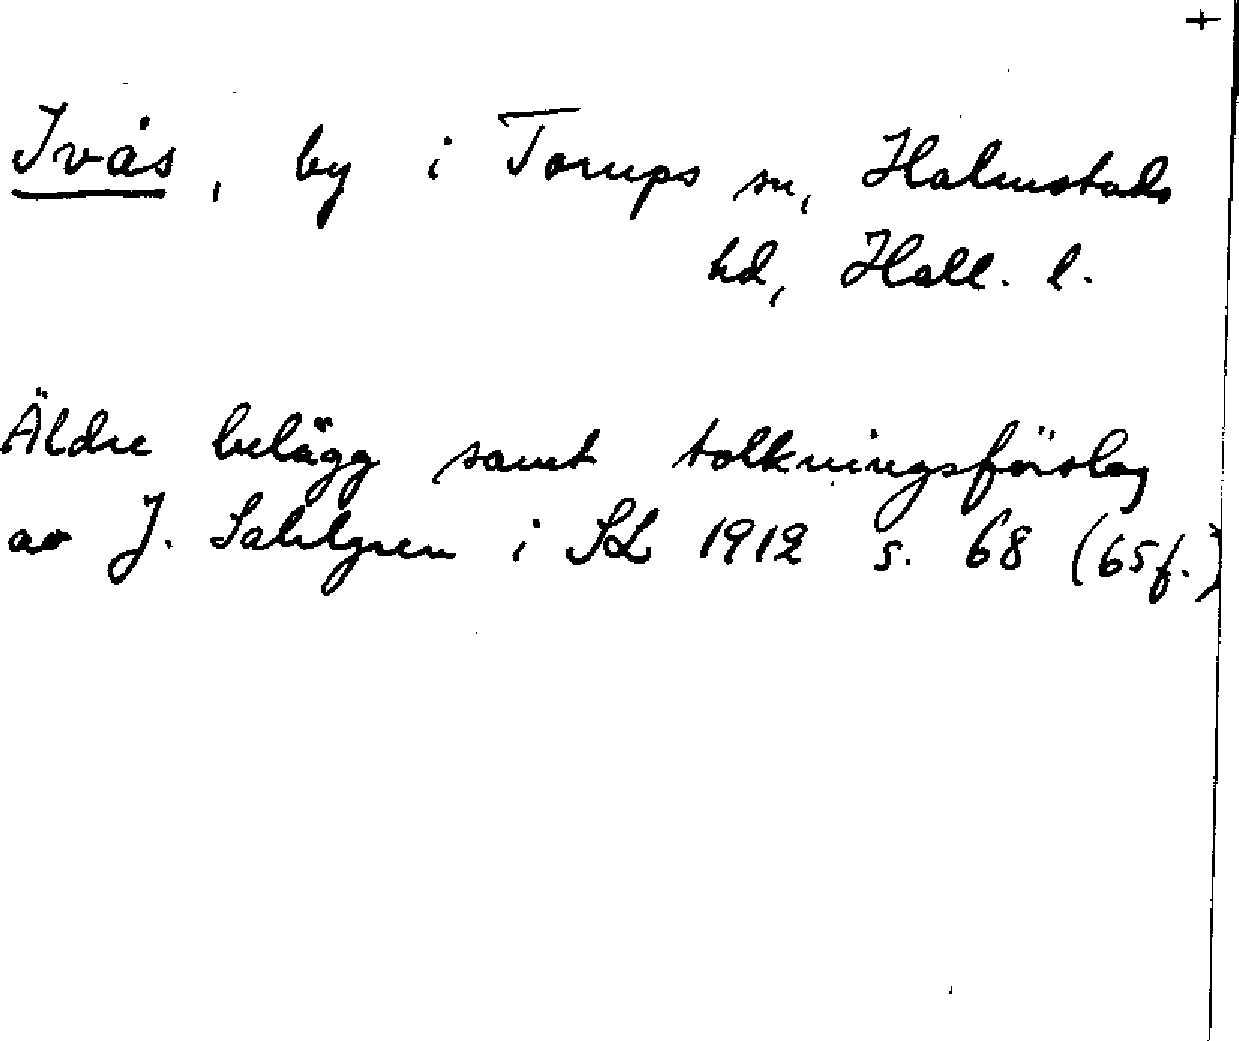 +
Ivås, by i Torups sn, Halmstads
hd, Hall. l.
Äldre belägg samt tolkningsförslag
av J. Sahlgren i SL 1912 s. 68 (65f.)